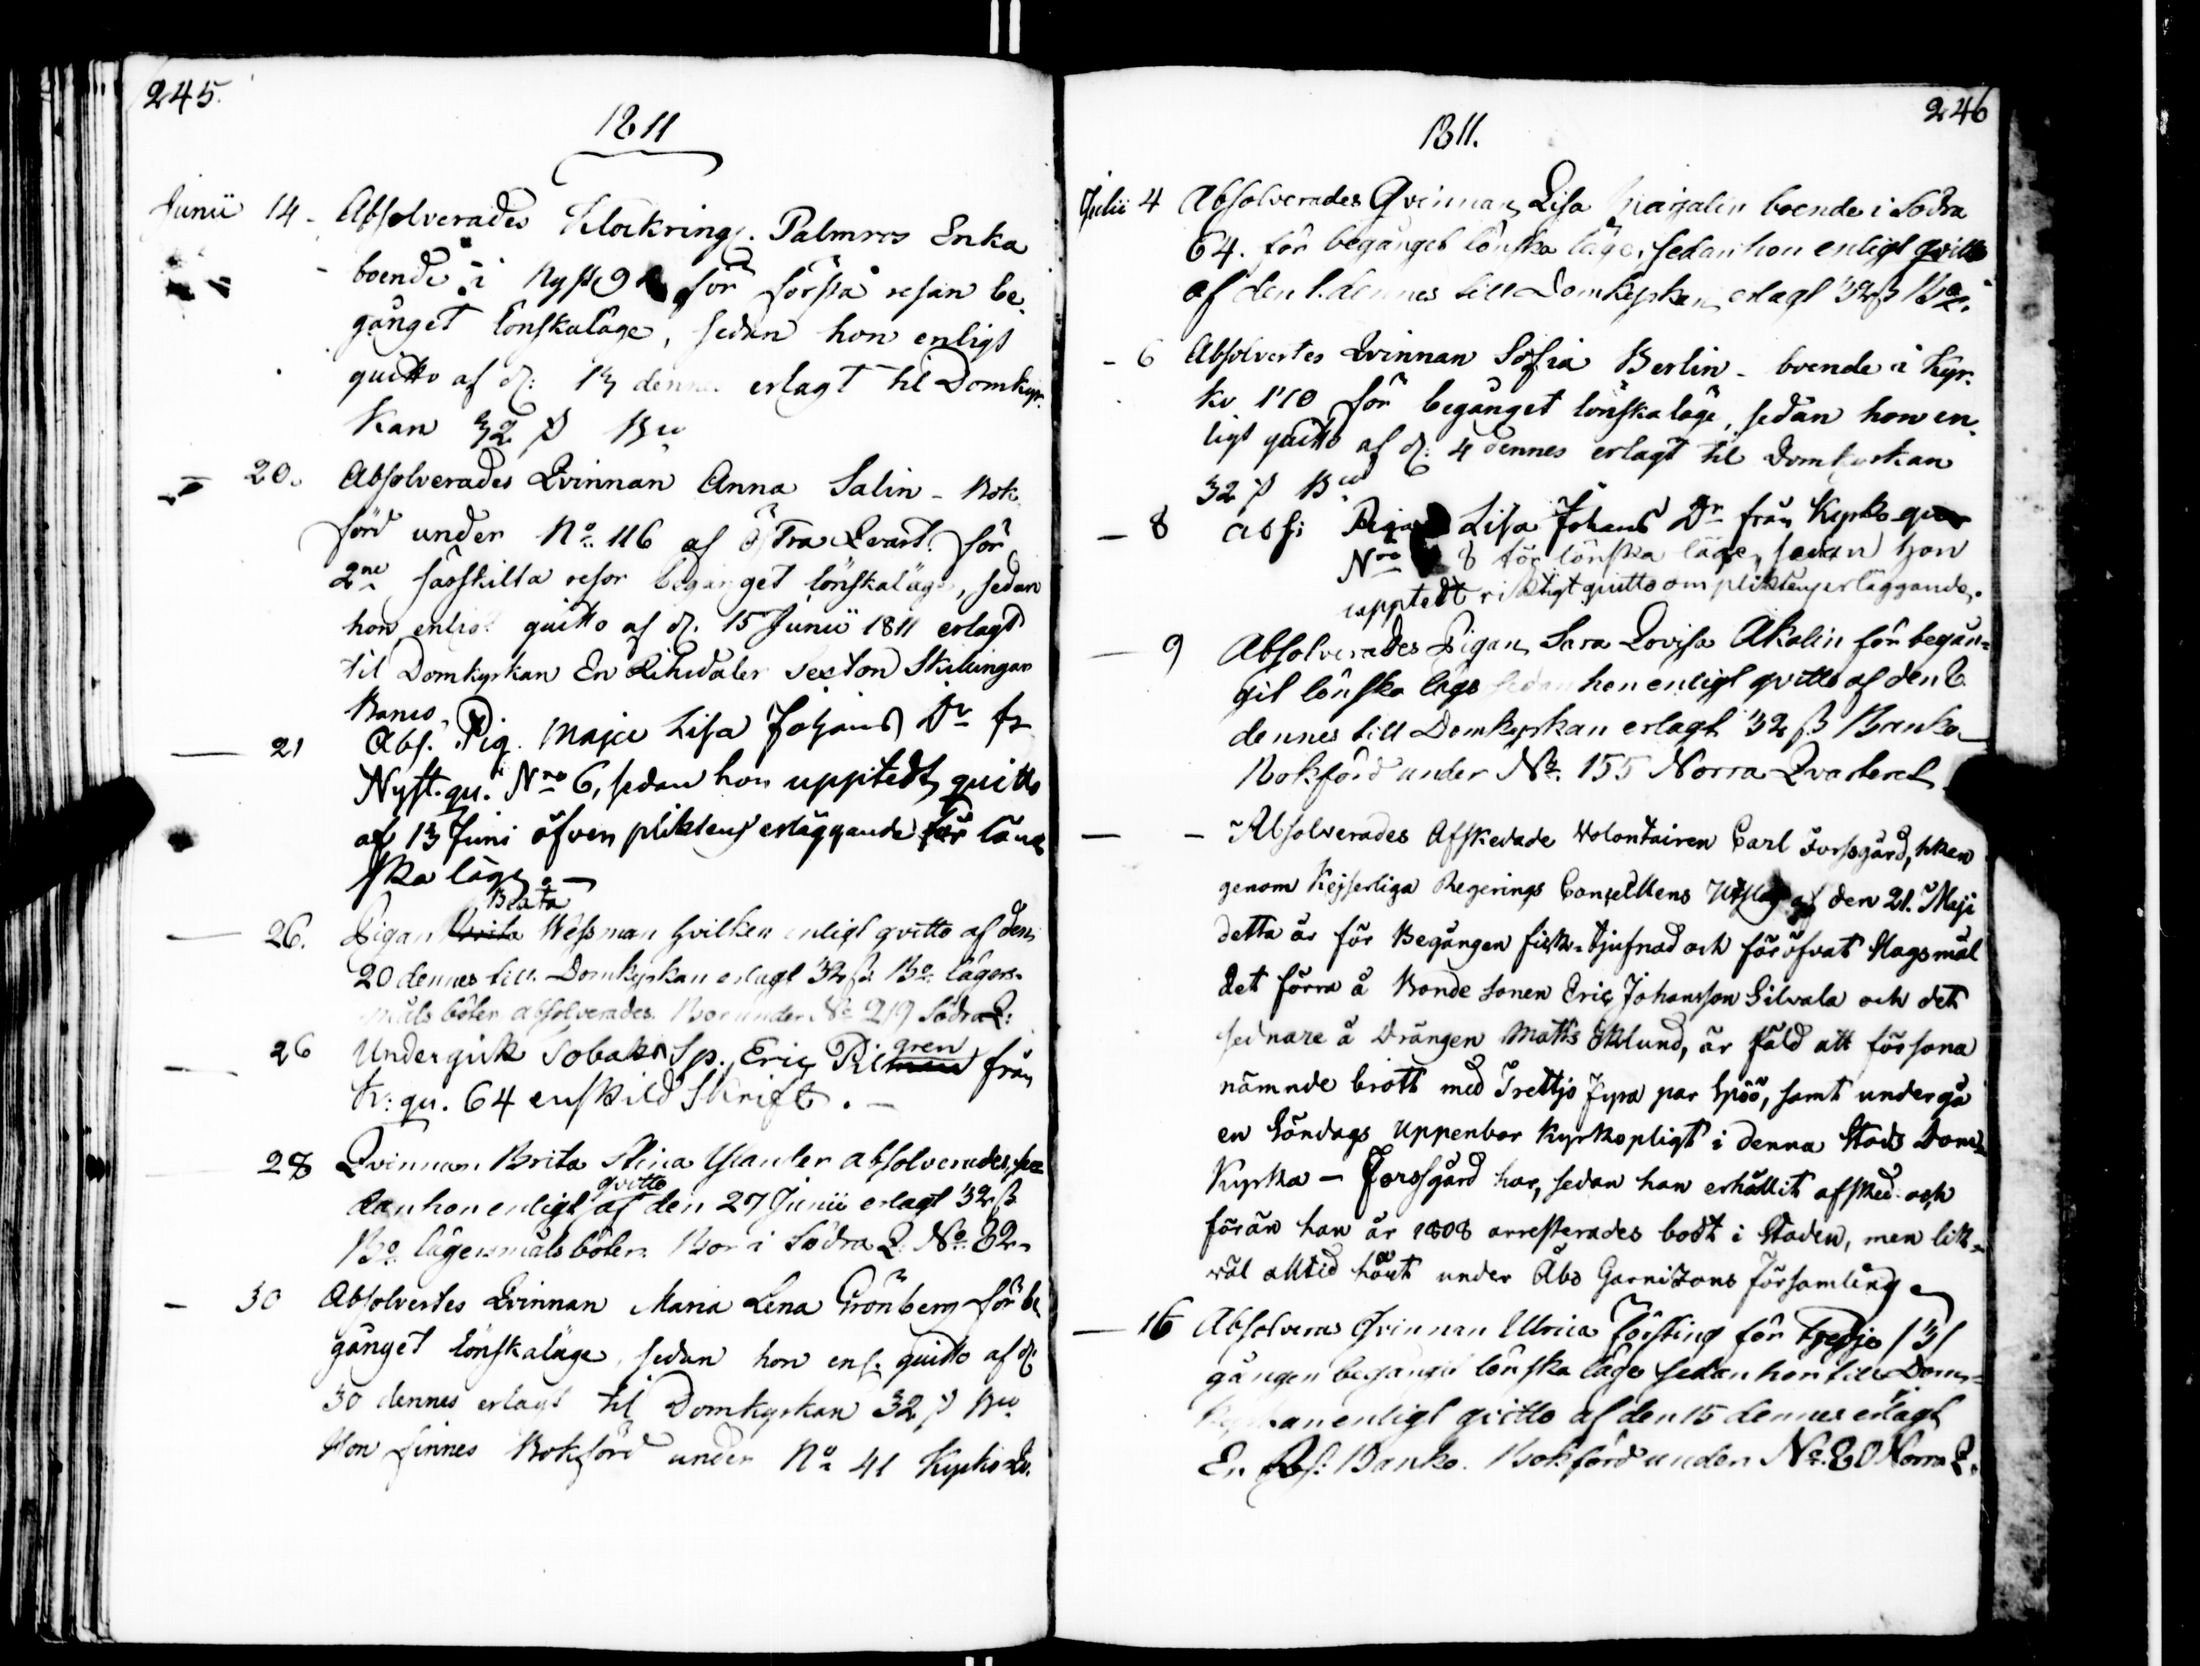 245.
1811
Junii 14. Absolverades Klockring. Palmros Enka
boende i Nyst 9 för första resan be¬
gånget lönskaläge, sedan hon enligt
quitto af d: 13 dennes erlagt til Domkyr¬
kan 32 ß Bco
20. Absolverades Qvinnan Anna Salin - Bok¬
förd under No 116 af Östra Qvart. för
2ne särskilta resor begånget lönskaläge, sedan
hon enligt quitto af d. 15 Junii 1811 erlagt
til Domkyrkan En Riksdaler sexton Skillingar
Banco.
21 Abs. Pig. Maja Lisa Johans Dr fr
Nyst. qu. Nro 6, sedan hon upptedt quitto
af 13 Juni öfver pliktens erläggande för löns
ska läge. —
Beata
26. Pigan Brita Wessman hvilken enligt qvitto af den
20 dennes till Domkyrkan erlagt 32 ß Bo lägers¬
måls böter absolverades. Bor under No 219 Södra Q:
26 Undergick Tobaks Sp. Eric Pil gren från
K: qu. 64 enskild Skrift. —
28 Qvinnan Brita Stina Ylander absolverades, se¬
dan hon enligt qvitto af den 27 Junii erlagt 32 ß
Bo lägersmåls böter. Bor i Södra Q. No 82.
30 Absolvertes Qvinnan Maria Lena Grönberg för be
gånget lönskaläge, sedan hon enl. quitto af d:
30 dennes erlagt til Domkyrkan 32 ß Bco
Hon finnes Bokförd under No 41 Kyrko Qv.
246
1811.
Julii 4 Absolverades Qvinnan Lisa boende i Södra
64. för begånget lönska läge, sedan hon enligt qvitto
af den 1. dennes till Domkyrkan erlagt 32 ß Bco.
- 6 Absolvertes Qvinnan Sofia Berlin - boende i Kyr¬
ko 110 för begånget lönskaläge, sedan hon en¬
ligt quitto af d: 4 dennes erlagt til Domkyrkan
32 ß Bco
— 8 Abs: Pigan Lisa Johans Dr från Kyrko qu
Nro 8 för lönska läge, sedan hon
upptedt riktigt quitto om pliktens erläggande.
— 9 Absolverades Pigan Sara Lovisa Akalin för begån¬
git lönska läge sedan hon enligt qvitto af den 8
dennes till Domkyrkan erlagt 32 ß Banko —
Bokförd under No. 155 Norra Qvarteret
— - Absolverades Afskedade Volontairen Carl Forssgård, hken
genom Kejserliga Regerings Conseillens Utslag af den 21. Maji
detta år för Begången fisk-tjufnad och föröfvat Slagsmål
det förra å Bonde sonen Eric Johansson Silvala och det
sednare å Drängen Matts Eklund, är fäld att försona
nämnde brott med Trettjo Fyra par Spöö, samt undergå
en Söndags Uppenbar Kyrkopligt i denna Stads Dom¬
Kyrka — Forssgård har, sedan han erhållit afsked och
förän han år 1808 arresterades bodt i Staden, men lik¬
väl alltid hört under Åbo Garnizons församling —
— 16 Absolveras Qvinnan Ulrica Törsting för tredje /3/
gången begångit lönska läge sedan hon till Dom¬
kyrkan enligt qvitto af den 15 dennes erlagt
En Rd: Banko. Bokförd under No. 80 Norra Q.